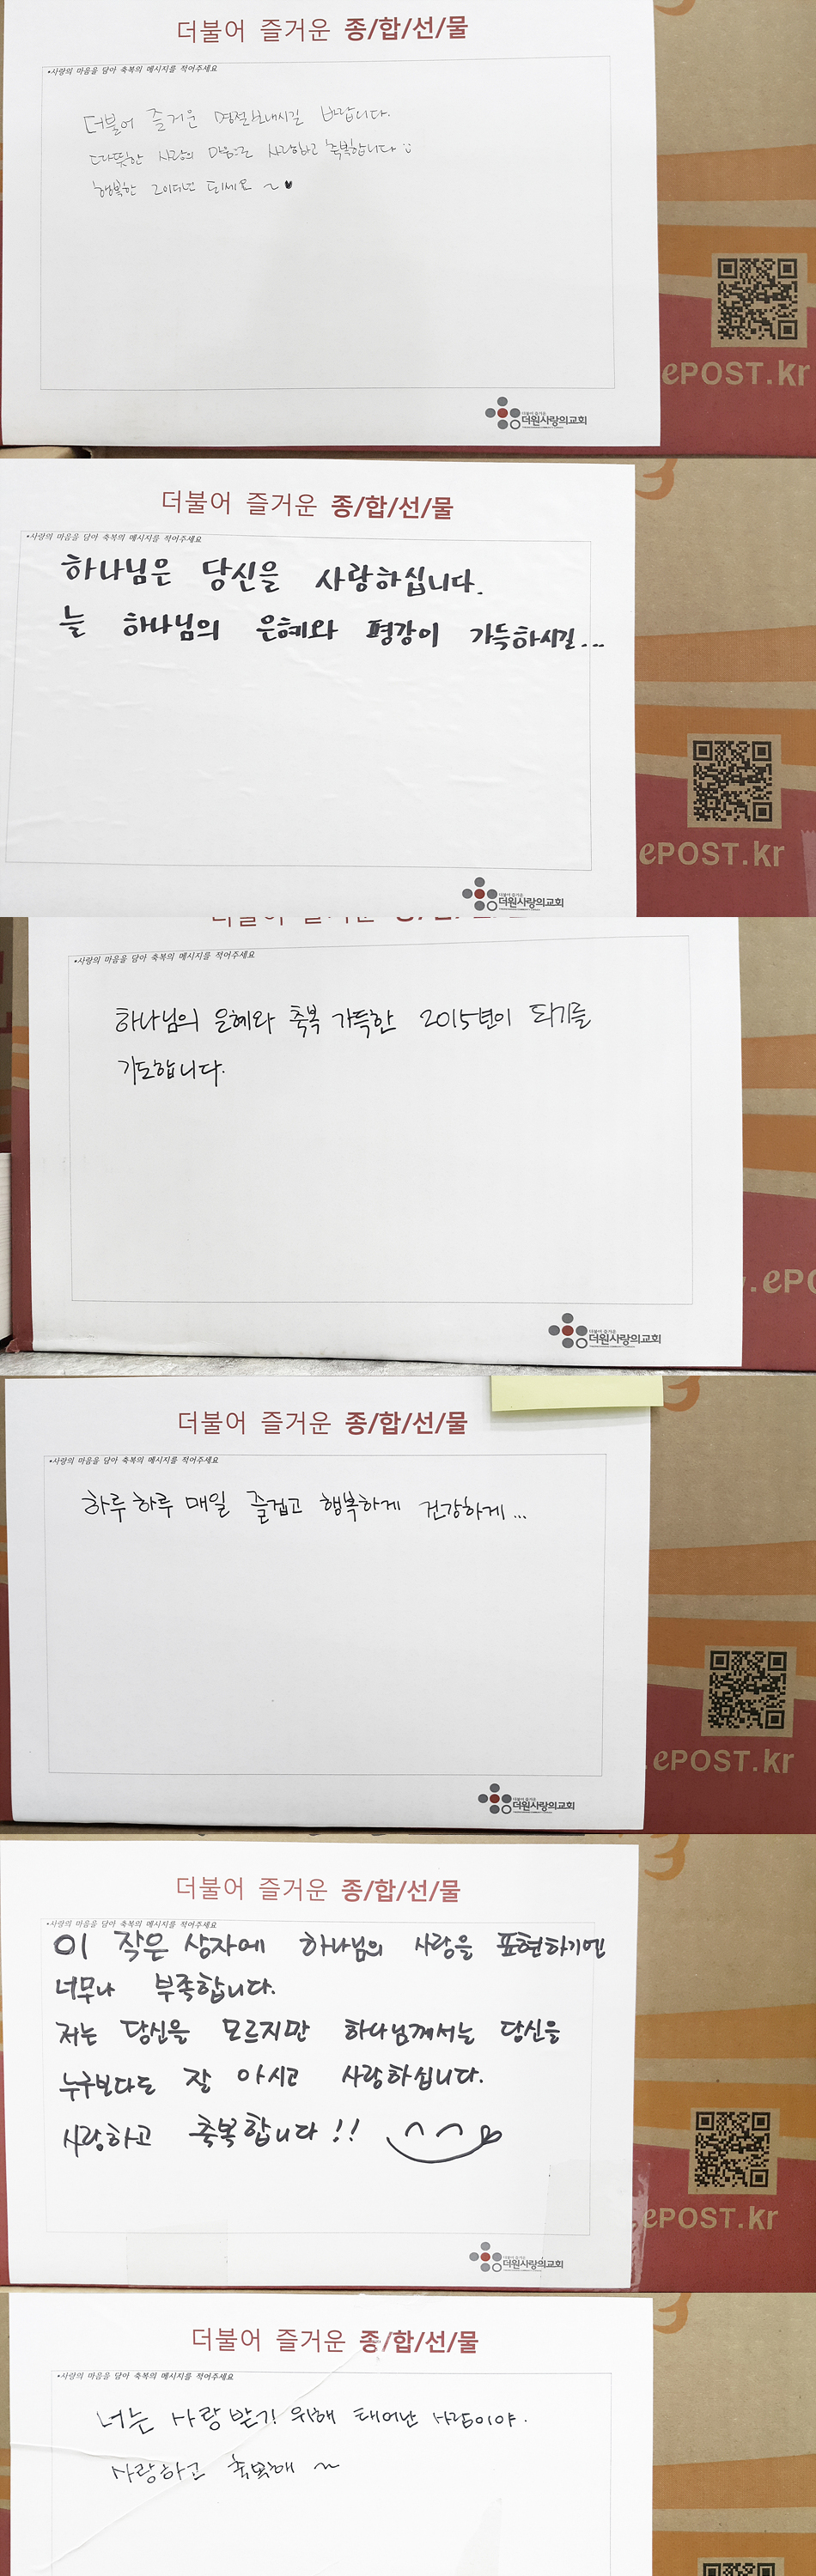 더불어 즐거운 종/합/선/물
•사랑의 마음을 담아 축복의 메시지를 적어주세요
더불어 즐거운 명절보내시길 바랍니다.
따뜻한 사랑의 마음으로 사랑하고 축복합니다
행복한 2015년 되세요 ~ ♥
더불어 즐거운
더원사랑의교회
ePOST.kr
더불어 즐거운 종/합/선/물
•사랑의 마음을 담아 축복의 메시지를 적어주세요
하나님은 당신을 사랑하십니다.
늘 하나님의 은혜와 평강이 가득하시길...
더불어 즐거운
더원사랑의교회
ePOST.kr
더불어 즐거운
•사랑의 마음을 담아 축복의 메시지를 적어주세요
하나님의 은혜와 축복 가득한 2015년이 되기를
기도합니다.
더불어 즐거운
더원사랑의교회
.ePO
더불어 즐거운 종/합/선/물
•사랑의 마음을 담아 축복의 메시지를 적어주세요
하루하루 매일 즐겁고 행복하게 건강하게...
더불어 즐거운
더원사랑의교회
.ePOST.kr
더불어 즐거운 종/합/선/물
•사랑의 마음을 담아 축복의 메시지를 적어주세요
이 작은 상자에 하나님의 사랑을 표현하기엔
너무나 부족합니다.
저는 당신을 모르지만 하나님께서는 당신을
누구보다도 잘 아시고 사랑하십니다.
사랑하고 축복합니다!!
더불어 즐거운
더원사랑의교회
ePOST.kr
더불어 즐거운 종/합/선/물
•사랑의 마음을 담아 축복의 메시지를 적어주세요
너는 사랑받기 위해 태어난 사람이야.
사랑하고 축복해 ~